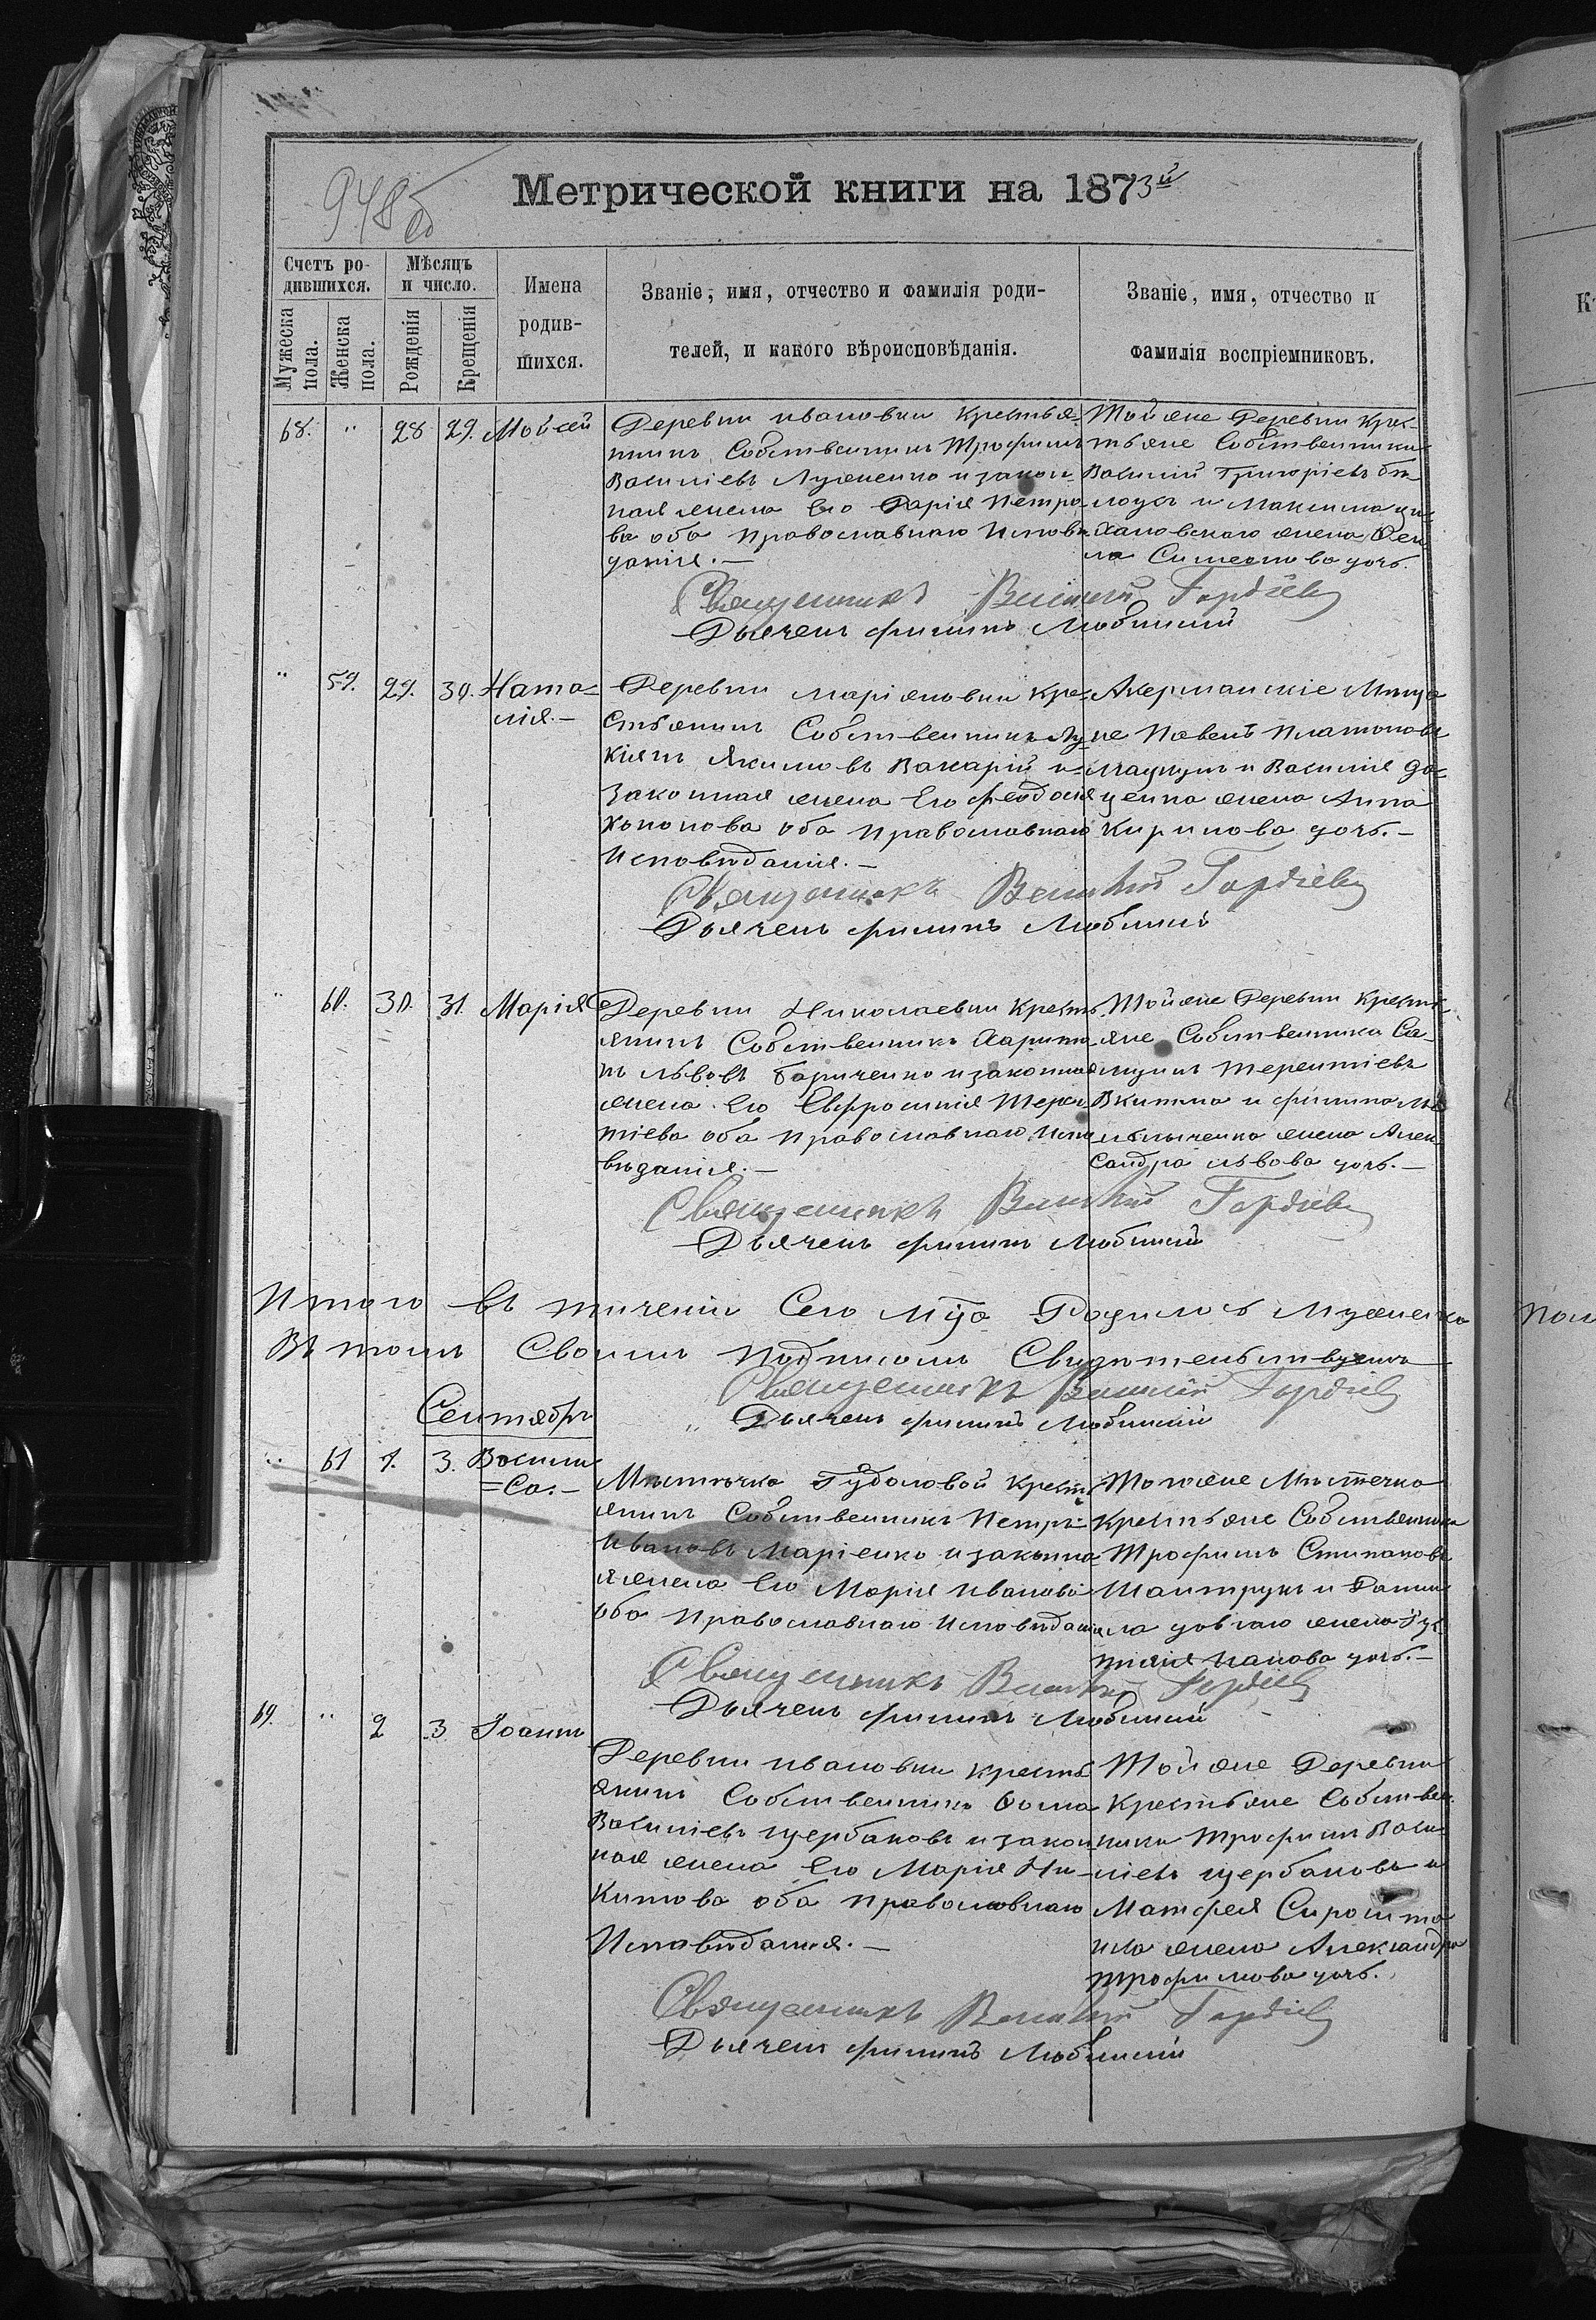 948 об
Метрической книги на 1873й
Счетъ ро-
дившихся.
Мѣсяцъ
и число.
Имена
родив-
шихся.
Званіе, имя, отчество и фамилія роди-
телей, и какого вѣроисповѣданія.
Званіе, имя, отчество и
фамилія воспріемниковъ.
Мужеска
пола.
Женска
пола.
Рожденія
Крещенія
68. " 28 29. Мойсей
Деревни Ивановки Крестья-
нинъ Собственникъ Трофимъ
Василіевъ Луженко и закон-
ная жена Его Дарія Петро-
ва оба Православнаго Испове-
данія.—
Той же Деревни Крес-
тьяне Собственники
Василій Григоріевъ
и Максима
жена
Симеонова дочь.
Священникъ Василій Гордіевъ
Дьячекъ Филипъ Любинскій
" 59. 29. 30. Ната-
лія.—
Деревни Маріяновки Кре-
стьянинъ Собственникъ Лу-
кіянъ Якимовъ Вакарій и
Законная жена Его Феодосія
Кононова оба Православнаго
Исповѣданія.—
Акерманскіе Мѣща-
не Павелъ Платоновъ
и Василія До-
ценка жена Анна
Кирилова дочь.—
Священникъ Василій Гордіевъ
Дьячекъ Филипъ Любинскій
" 60. 30. 31. Марія
Деревни Николаевки Кресть-
янинъ Собственникъ Харито-
нъ Львовъ Бориченко и законная
жена Его Евфросинія Терен-
тіева оба Православнаго Испо-
вѣданія.—
Той же Деревни Кресть-
яне Собственники Са-
муилъ Терентіевъ
и Филипа
жена Алек-
сандра Львова дочь.—
Священникъ Василій Гордіевъ
Дьячекъ Филипъ Любинскій
Итого въ теченіи Сего Мца Родилось Мужеска
Въ томъ Своимъ Подписомъ Свидѣтельствуемъ
Священникъ Василій Гордіевъ
" Дьячекъ Филипъ Любинскій
Сентябрь
" 61 1. 3. Васили-
=са.—
Мѣстечка Крест-
янинъ Собственникъ Петръ
Ивановъ Маріенко и законна-
я жена Его Марія Иванова
оба Православнаго Исповѣданія
Тогоже Мѣстечка
Крестьяне Собственники
Трофимъ Стипановъ
и Дани-
ла Довгаго жена
дочь.—
Священникъ Василій Гордіевъ
Дьячекъ Филипъ Любинскій
69. " 2 3 Іоаннъ
Деревни Ивановки Кресть-
янинъ Собственникъ Фома
Василіевъ Щербаковъ и закон-
ная жена Его Марія Ни-
китова оба Православнаго
Исповѣданія.—
Той же Деревни
Крестьяне Собствен-
ники Трофимъ Васи-
ліевъ Щербаковъ и
Матфея
жена Александра
Трофимова дочь.
Священникъ Василій Гордіевъ
Дьячекъ Филипъ Любинскій